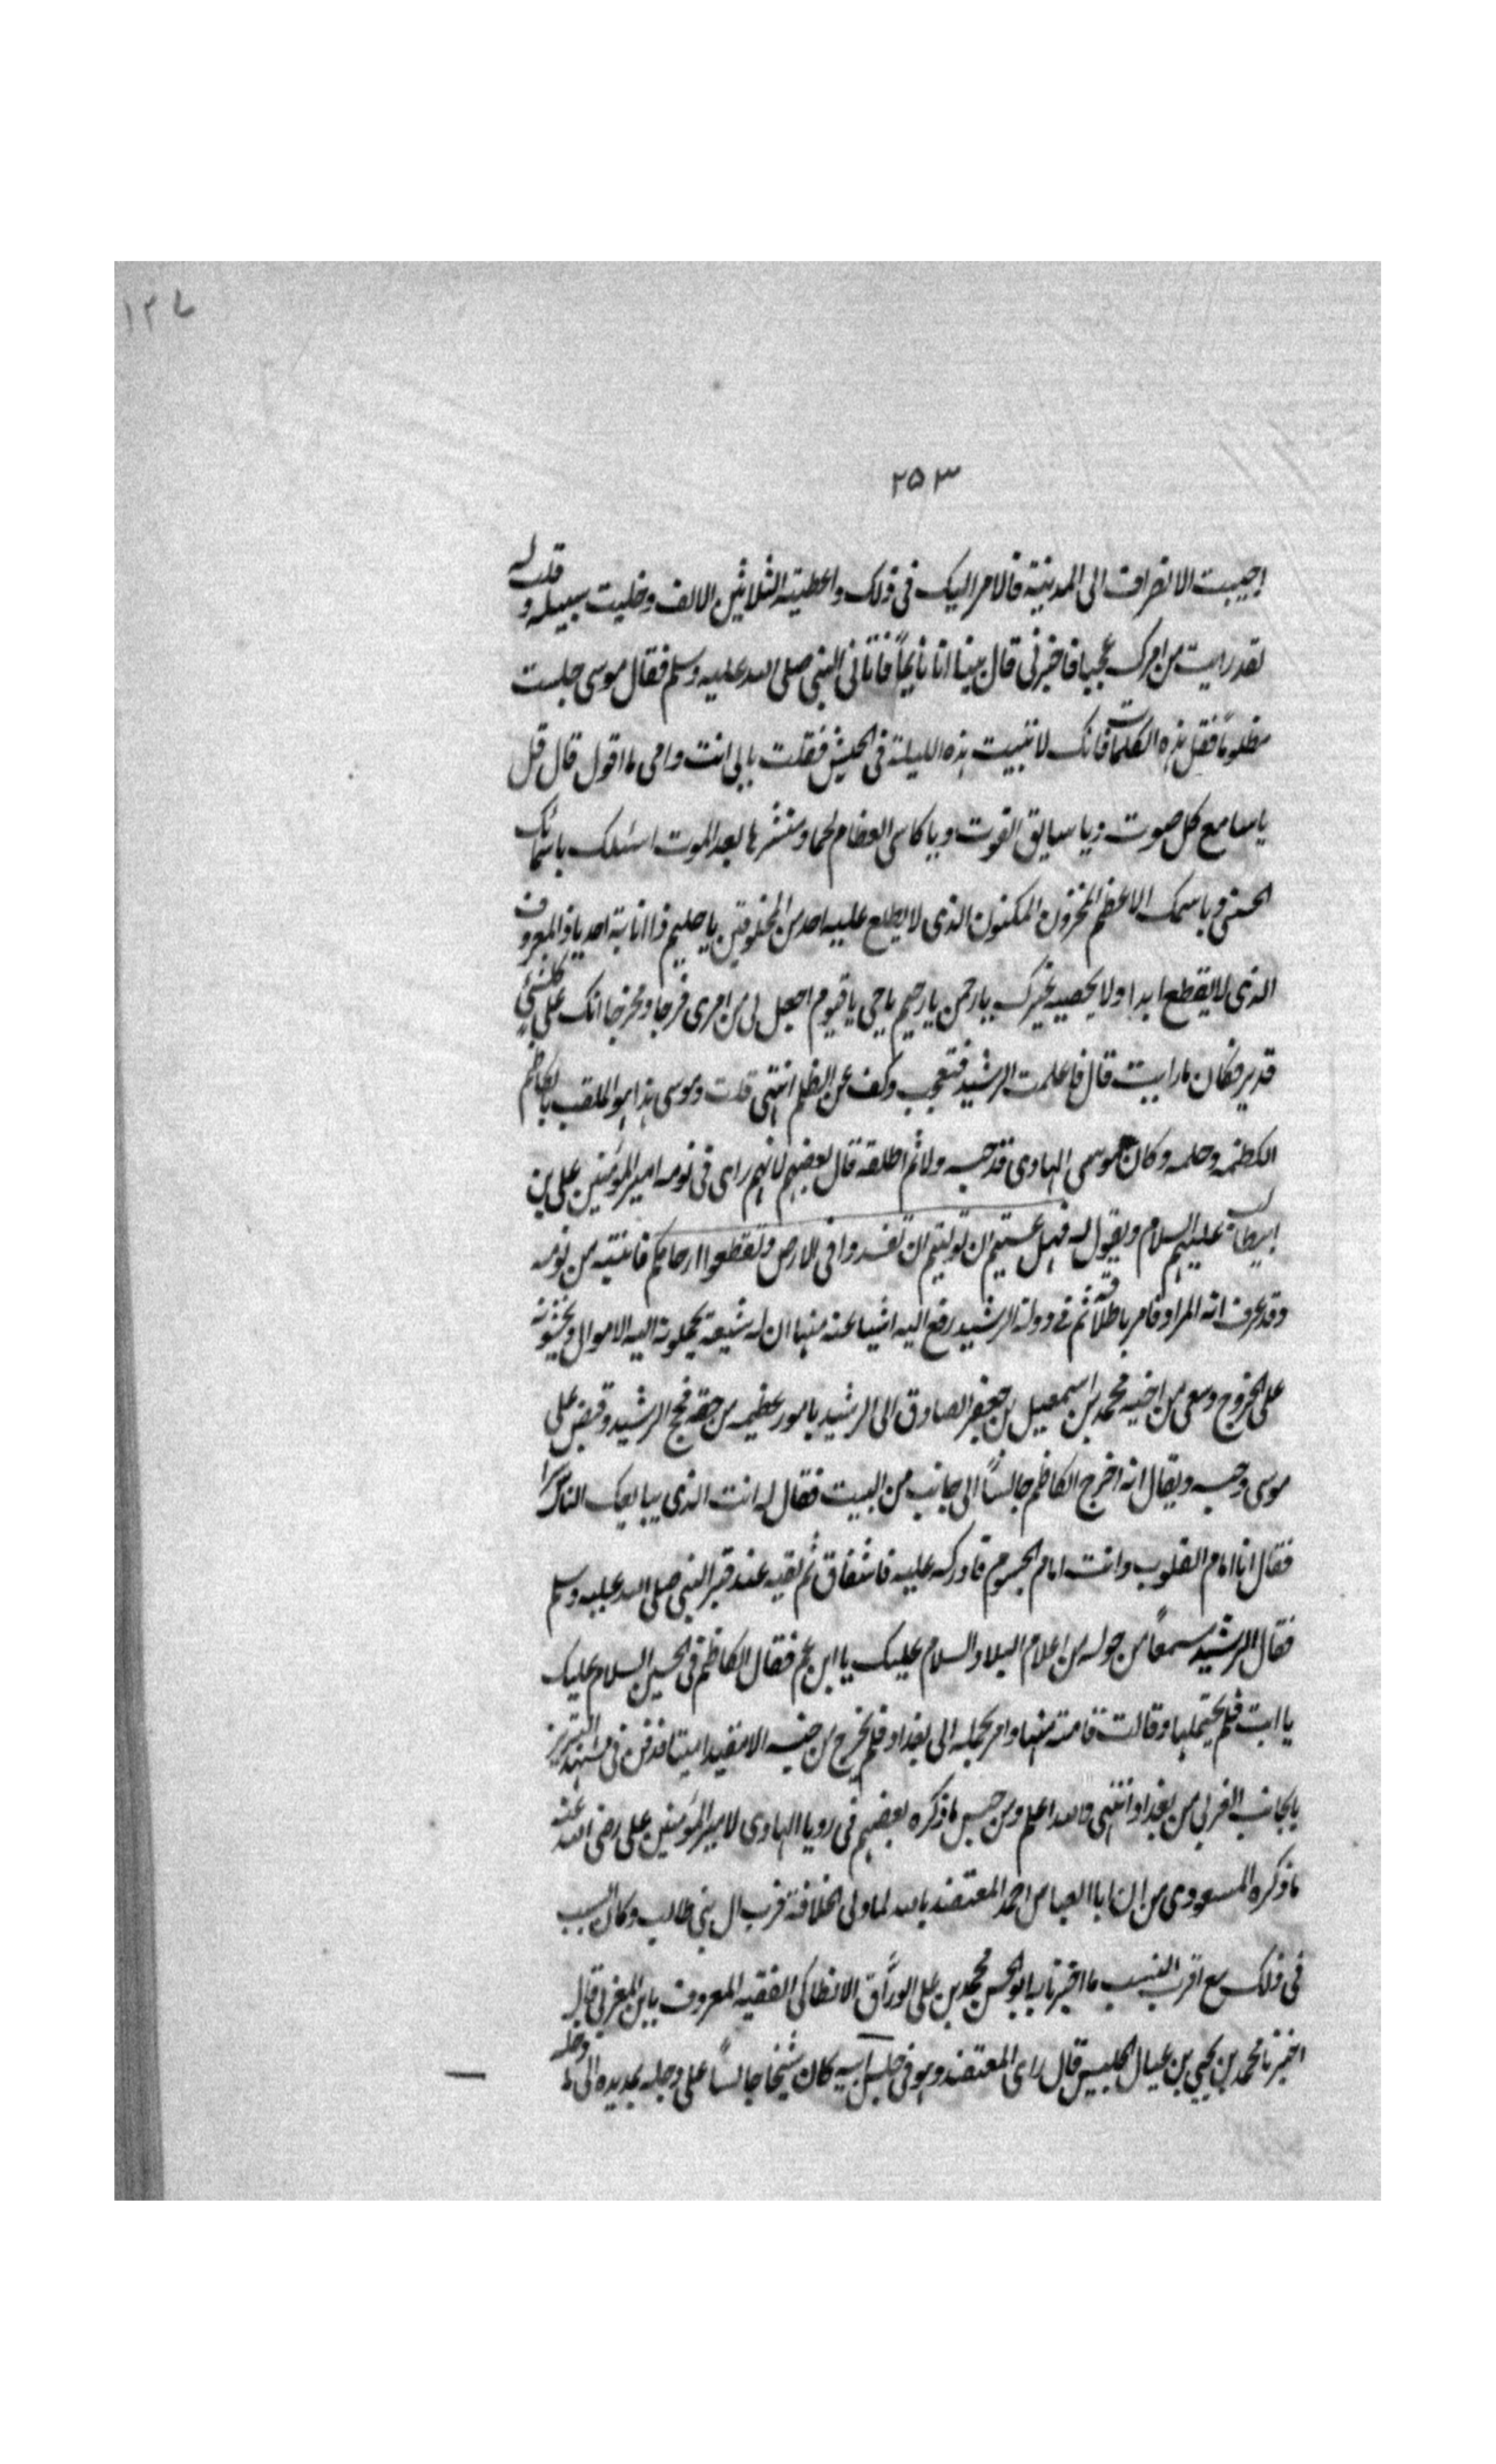 ١٢٧
٢٥٣
احببت الانصراف الى المدينة فالامر اليك فى ذلك واعطيته الثلاثين الالف وخليت سبيله وقلت له
لقد رايت من امرك عجبا فاخبرنى قال بينا انا نايماً فاتانى النبى صلى الله عليه وسلم فقال موسى حبست
مظلوما فقل هذه الكلمات فانك لا تبيت هذه الليلة فى الحبس فقلت بابى انت وامى ما اقول قال قل
يا سامع كل صوت ويا سابق الفوت ويا كاسى العظام لحما ومنشرها بعد الموت اسئلك باسمائك
الحسنى وباسمك الاعظم المخزون المكنون الذى لا يطلع عليه احد من المخلوقين يا حليم ذا اناية احد يا ذا المعروف
الذى لا ينقطع ابدا ولا يحصيه غيرك يا رحمن يا رحيم يا حى يا قيوم اجعل لى من امرى فرجا ومخرجا انك على كلشئ
قدير فكان ما رايت قال فاعلمت الرشيد فتعجب وكف عن الظلم انتهى قلت وموسى هذا هو الملقب بالكاظم
لكظمه وحلمه وكان موسى الهادى قد حبسه ولاثم اطلقه قال بعضهم لانهم راى فى نومه امير المؤمنين على بن
ابيطالب عليهم السلام ويقول له فهل عسيتم ان توليتم ان تفسدوا فى الارض وتقطعوا ارحامكم فانتبه من نومه
وقد عرف انه المراد فامر باطلاقه ثم فى دولة الرشيد رفع اليه اشيا عنه منها ان له شيعة يحملونه اليه الاموال ويحثونه
على الخروج وسعى من اخيه محمد بن اسمعيل بن جعفر الصادق الى الرشيد بامور عظيمه من حقه فحج الرشيد وقبض على
موسى وحبسه ويقال انه اخرج الكاظم جالساً الى جانب من البيت فقال له انت الذى يبايعك الناس سرا
فقال انا امام القلوب وانت امام الجسوم فادركه عليه فاشفاق ثم لقيه عند قبر النبى صلى الله عليه وسلم
فقال الرشيد مسمعاً من حوله من اعلام البلاد السلام عليك يا ابن عم فقال الكاظم فى الحين السلام عليك
يا ابت فلم يحتملها وقالت قامته منها وامر بحمله الى بغداد فلم يخرج من حبسه الا مقيدا ميتا فدفن فى مشهد
بالجانب الغربى من بغداد انتهى والله اعلم ومن جنس ما ذكره بعضهم فى رويا الهادى لامير المؤمنين على رضى الله عنه
ما ذكره المسعودى من ان ابا العباس احمد المعتضد بالله لما ولى الخلافة قرب ال بنى طالب وكان السبب
فى ذلك مع اقرب النسب ما اخبرنا به ابو الحسن محمد بن على الوراق الانطاكى الفقيه المعروف بابن المغربى قال
اخبرنا محمد بن يحيى بن عيال الجليس قال راى المعتضد وهو فى حبس ابيه كان شيخا جالساً على دجله يمد يده الى ما دجله